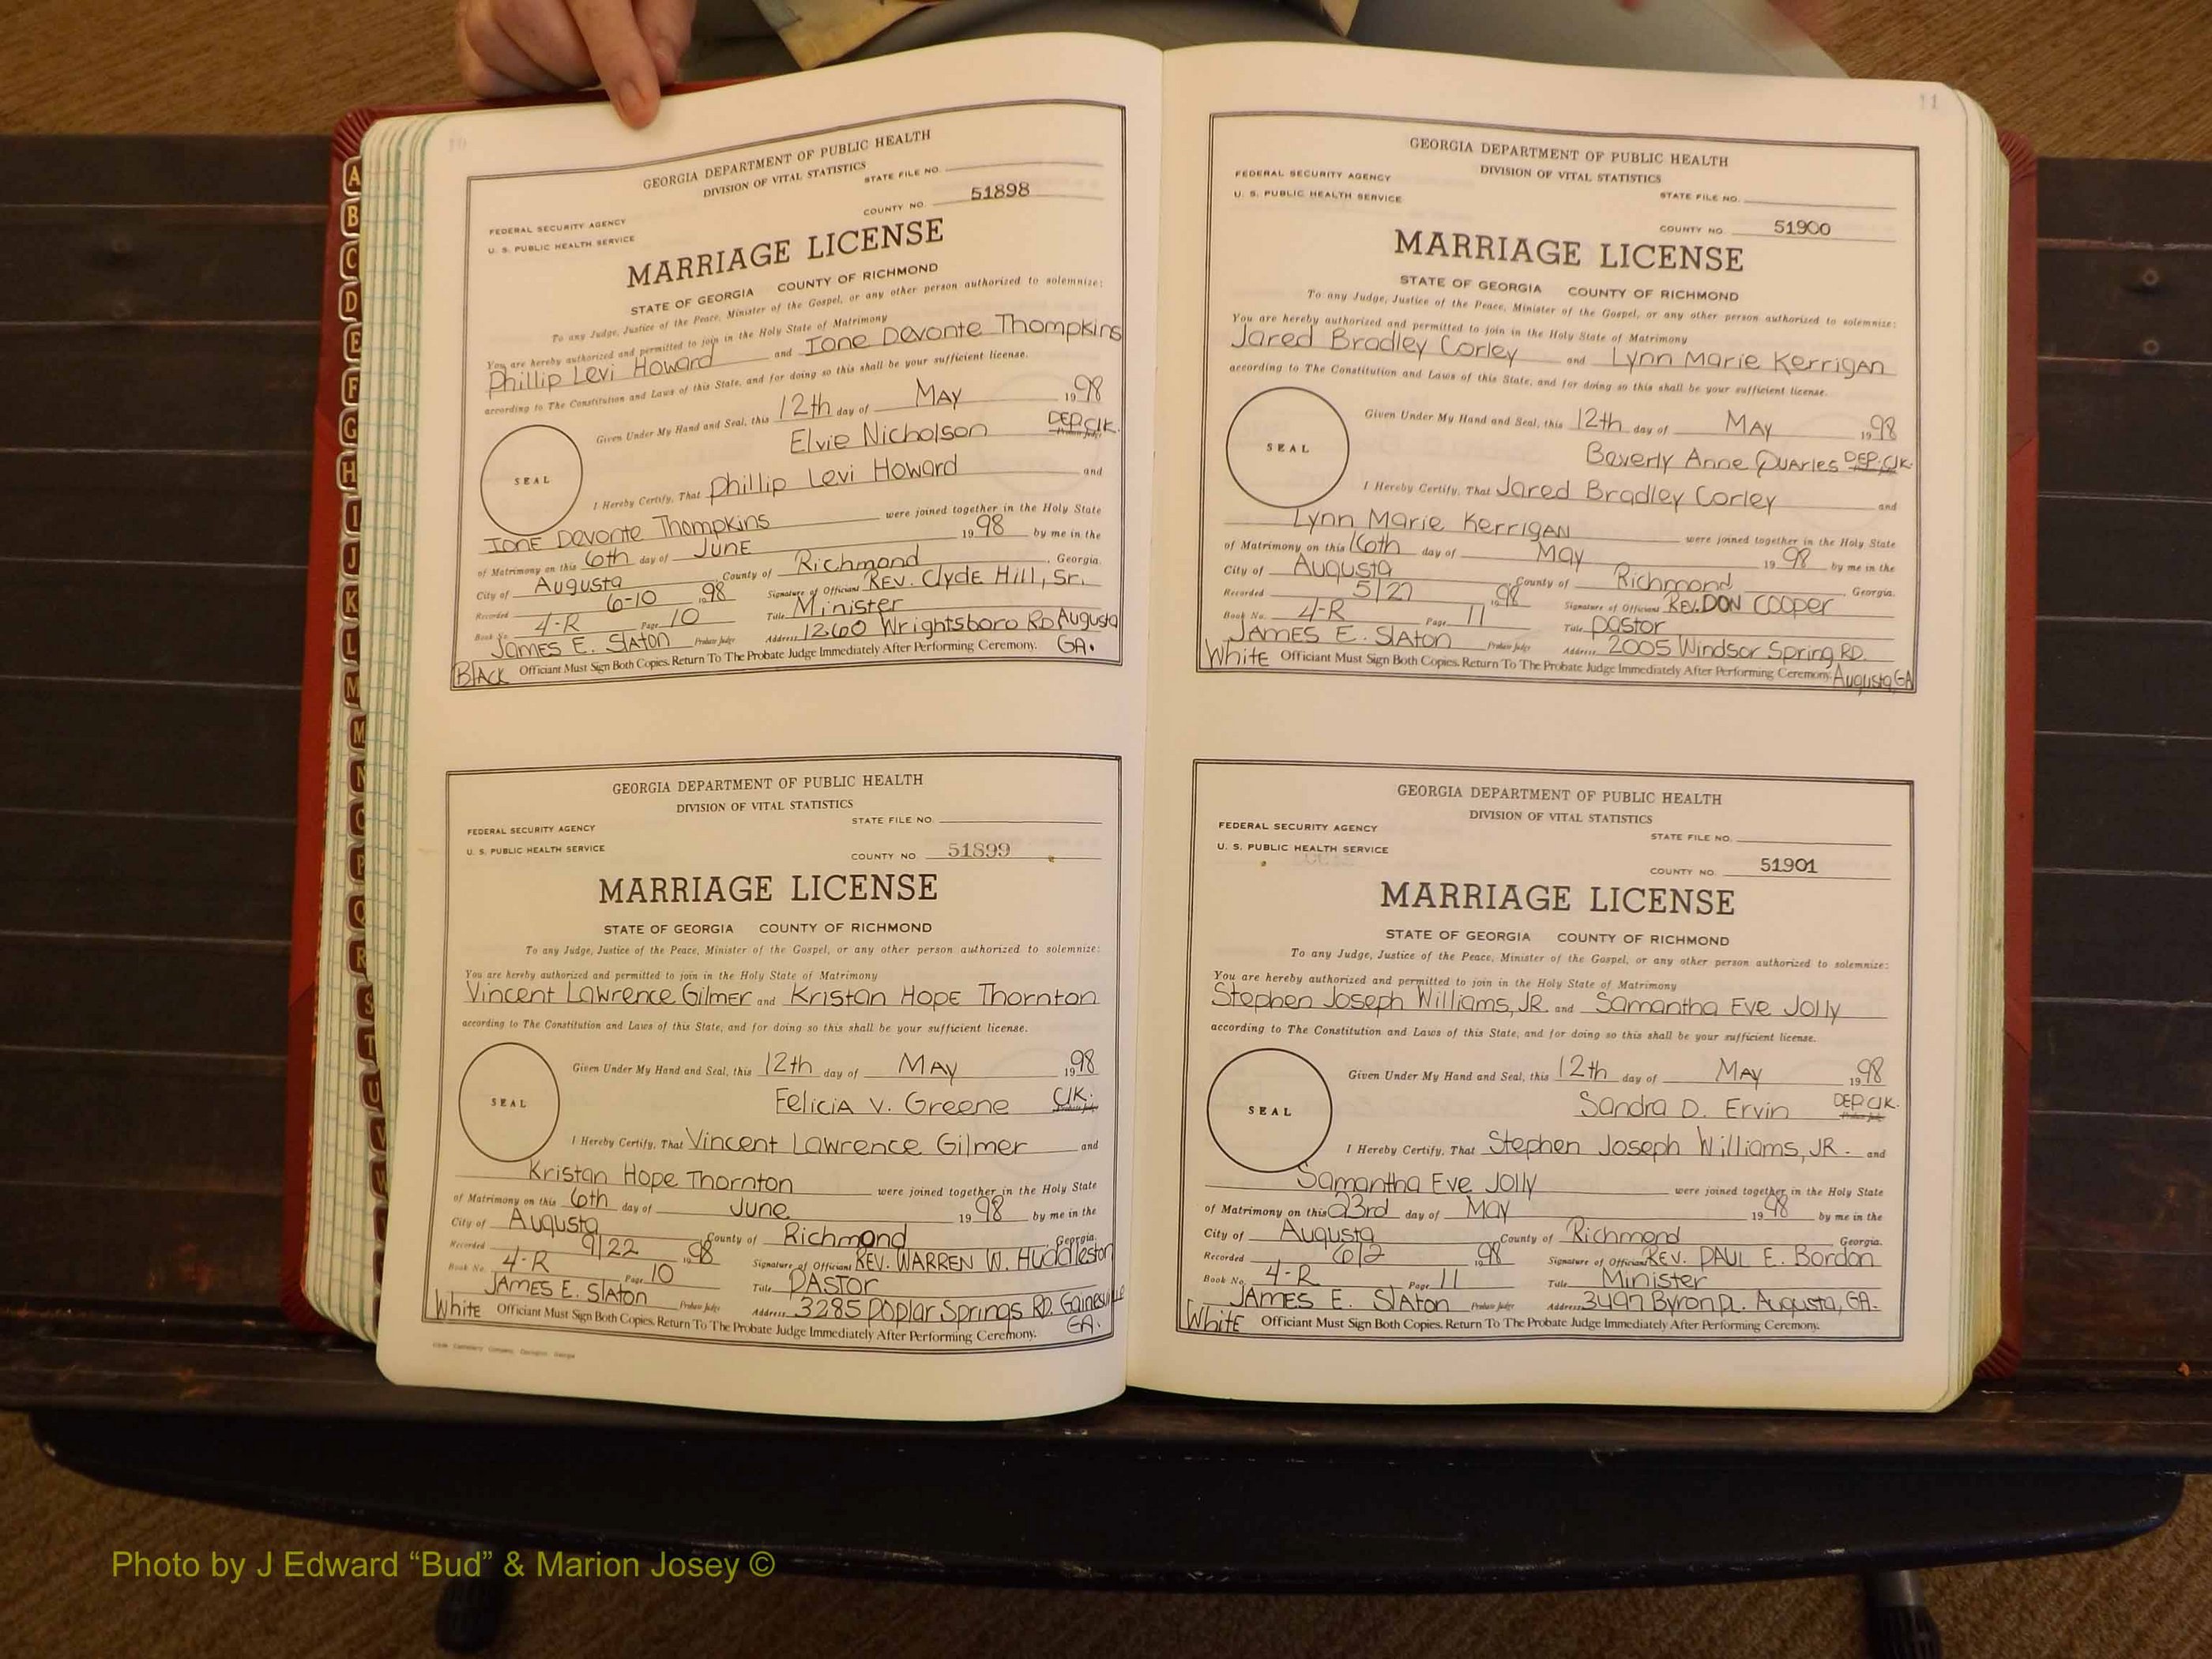 A
B
C
D
E
F
G
H
I
J
K
L
M
M
N
O
P
Q
R
S
T
U
V
W
10
GEORGIA DEPARTMENT OF PUBLIC HEALTH
DIVISION OF VITAL STATISTICS
STATE FILE NO.
FEDERAL SECURITY AGENCY
COUNTY NO. 51898
U. S. PUBLIC HEALTH SERVICE
MARRIAGE LICENSE
STATE OF GEORGIA COUNTY OF RICHMOND
To any Judge, Justice of the Peace, Minister of the Gospel, or any other person authorized to solemnize:
You are hereby authorized and permitted to join in the Holy State of Matrimony
Phillip Levi Howard and Ione Devonte Thompkins
according to The Constitution and Laws of this State, and for doing so this shall be your sufficient license.
Given Under My Hand and Seal, this 12th day of MAY 1998
Elvie Nicholson DEP. Clk.
SEAL
I Hereby Certify, That Phillip Levi Howard and
IONE Devonte Thompkins were joined together in the Holy State
of Matrimony on this 6th day of JUNE 1998 by me in the
City of Augusta County of Richmond Georgia.
Recorded 6-10 1998 Signature of Officiant REV. Clyde Hill, Sr.
Book No. 4-R Page 10 Title Minister
JAMES E. SlATON Probate Judge Address 1260 Wrightsboro RD Augusta
BlACK Officiant Must Sign Both Copies. Return To The Probate Judge Immediately After Performing Ceremony. GA.
GEORGIA DEPARTMENT OF PUBLIC HEALTH
DIVISION OF VITAL STATISTICS
STATE FILE NO.
FEDERAL SECURITY AGENCY
U. S. PUBLIC HEALTH SERVICE
COUNTY NO 51899
MARRIAGE LICENSE
STATE OF GEORGIA COUNTY OF RICHMOND
To any Judge, Justice of the Peace, Minister of the Gospel, or any other person authorized to solemnize:
You are hereby authorized and permitted to join in the Holy State of Matrimony
Vincent LAwrence Gilmer and Kristan HOPE Thornton
according to The Constitution and Laws of this State, and for doing so this shall be your sufficient license.
Given Under My Hand and Seal, this 12th day of MAY 1998
FeliciA V. Greene Clk.
SEAL
I Hereby Certify, That Vincent LAwrence Gilmer and
Kristan Hope Thornton were joined together in the Holy State
of Matrimony on this 6th day of June 1998 by me in the
City of Augusta County of Richmond Georgia.
Recorded 9/22 1998 Signature of Officiant REV. WARREN W. Huddleston
Book No. 4-R Page 10 Title PAStor
JAMES E. SlAton Probate Judge Address 3285 Poplar Springs RD. Gainesville
White Officiant Must Sign Both Copies. Return To The Probate Judge Immediately After Performing Ceremony. GA.
11
GEORGIA DEPARTMENT OF PUBLIC HEALTH
DIVISION OF VITAL STATISTICS
FEDERAL SECURITY AGENCY
STATE FILE NO.
U. S. PUBLIC HEALTH SERVICE
COUNTY NO. 51900
MARRIAGE LICENSE
STATE OF GEORGIA COUNTY OF RICHMOND
To any Judge, Justice of the Peace, Minister of the Gospel, or any other person authorized to solemnize:
You are hereby authorized and permitted to join in the Holy State of Matrimony
Jared Bradley Corley and Lynn Marie KerrigAN
according to The Constitution and Laws of this State, and for doing so this shall be your sufficient license.
Given Under My Hand and Seal, this 12th day of MAY 1998
Beverly Anne QuArles DEP. Clk.
SEAL
I Hereby Certify, That Jared Bradley Corley and
Lynn Marie KerrigAN were joined together in the Holy State
of Matrimony on this 16th day of MAY 1998 by me in the
City of Augusta County of Richmond Georgia.
Recorded 5/27 1998 Signature of Officiant REV. DON COOper
Book No. 4-R Page 11 Title pastor
JAMES E. SlAton Probate Judge Address 2005 Windsor Spring RD.
White Officiant Must Sign Both Copies. Return To The Probate Judge Immediately After Performing Ceremony. Augusta, GA
GEORGIA DEPARTMENT OF PUBLIC HEALTH
DIVISION OF VITAL STATISTICS
FEDERAL SECURITY AGENCY
STATE FILE NO.
U. S. PUBLIC HEALTH SERVICE
COUNTY NO. 51901
MARRIAGE LICENSE
STATE OF GEORGIA COUNTY OF RICHMOND
To any Judge, Justice of the Peace, Minister of the Gospel, or any other person authorized to solemnize:
You are hereby authorized and permitted to join in the Holy State of Matrimony
Stephen Joseph Williams, JR. and Samantha Eve Jolly
according to The Constitution and Laws of this State, and for doing so this shall be your sufficient license.
Given Under My Hand and Seal, this 12th day of MAY 1998
Sandra D. Ervin DEP Clk.
SEAL
I Hereby Certify, That Stephen Joseph Williams, JR. and
Samantha Eve Jolly were joined together in the Holy State
of Matrimony on this 23rd day of May 1998 by me in the
City of Augusta County of Richmond Georgia.
Recorded 6/2 1998 Signature of Officiant REV. PAUL E. Bordon
Book No. 4-R Page 11 Title Minister
JAMES E. SlAton Probate Judge Address 3497 Byron pl. Augusta, GA.
White Officiant Must Sign Both Copies. Return To The Probate Judge Immediately After Performing Ceremony.
Photo by J Edward “Bud” & Marion Josey ©